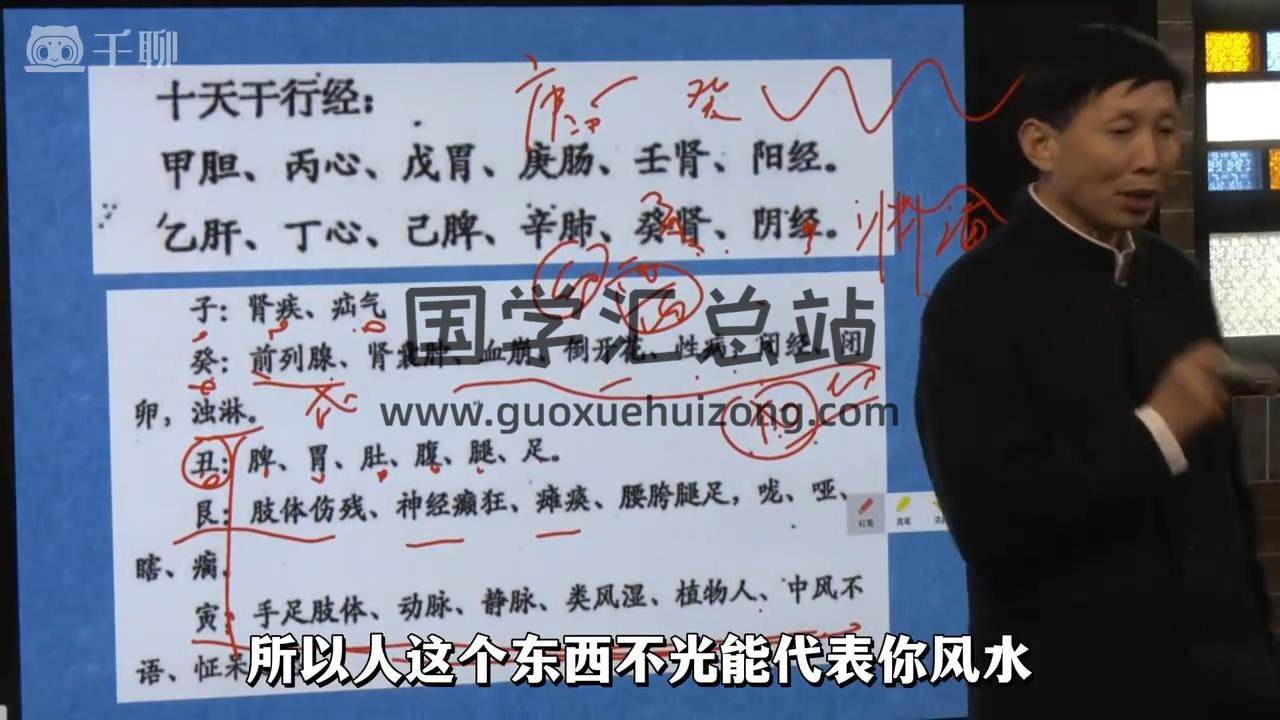 千聊
十天干行经：
庚 癸
甲胆、丙心、戊胃、庚肠、壬肾、阳经。
乙肝、丁心、己脾、辛肺、癸肾、阴经。
子：肾疾、疝气
国学汇总站
癸：前列腺、肾囊肿、血崩、倒开花、性病、闭经、闭
www.guoxuehuizong.com
卵，浊淋。
丑：脾、胃、肚、腹、腿、足。
艮：肢体伤残、神经癫狂、瘫痪、腰胯腿足，咙、哑、
红笔
瞎、痫。
寅：手足肢体、动脉、静脉、类风湿、植物人、中风不
语、怔呆
所以人这个东西不光能代表你风水